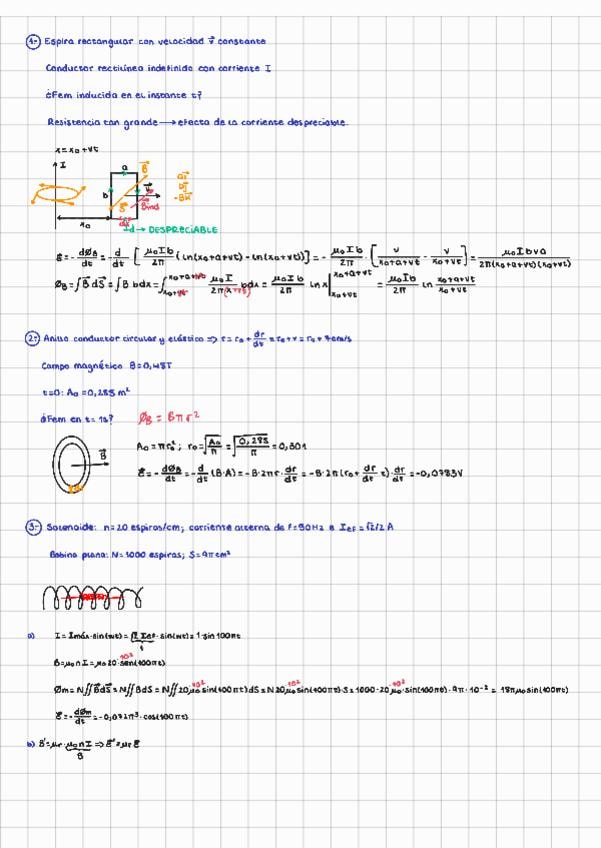 1- Espira rectangular con velocidad v⃗ constante
Conductor rectilíneo indefinido con corriente I
¿Fem inducida en el instante t?
Resistencia tan grande → efecto de la corriente despreciable.
x = x₀ + vt
I
a
B⃗
b
v⃗
S⃗
x₀
Id → DESPRECIABLE
ε = - dØB/dt = - d/dt [ μ₀Ib/2π (ln(x₀+a+vt) - ln(x₀+vt)) ] = - μ₀Ib/2π · [ v/(x₀+a+vt) - v/(x₀+vt) ] = μ₀Ibva/2π(x₀+a+vt)(x₀+vt)
ØB = ∫B⃗ dS⃗ = ∫B bdx = ∫ μ₀I/2πx bdx = μ₀Ib/2π ln x | x₀+a+vt x₀+vt = μ₀Ib/2π ln x₀+a+vt/x₀+vt
2- Anillo conductor circular y elástico ⇒ r = r₀ + dr/dt = r₀ + v = r₀ + 7cm/s
Campo magnético B = 0,45T
t=0: A₀ = 0,285 m²
¿Fem en t = 1s? ØB = Bπr²
A₀ = πr₀²; r₀ = √A₀/π = √0,285/π = 0,301
B⃗
ε = - dØB/dt = - d/dt (B·A) = -B·2πr · dr/dt = -B·2π(r₀ + dr/dt t) · dr/dt = -0,0783V
3- Solenoide: n=20 espiras/cm; corriente alterna de f=50Hz e Ief = √2/2 A
Bobina plana: N=1000 espiras; S=9πcm²
a) I = Imáx·sin(wt) = √2 Ief·sin(wt) = 1·sin 100πt
1
B = μ₀ n I = μ₀ 20·10²·sen(100πt)
Øm = N∬B⃗dS⃗ = N∬BdS = N∬20·10²μ₀sin(100πt)dS = N 20·10²μ₀sin(100πt)·S = 1000·20·10²μ₀·sin(100πt)·9π·10⁻² = 18πμ₀sin(100πt)
ε = - dØm/dt = -0,072π³·cos(100πt)
b) B' = μr·μ₀nI ⇒ ε' = μr ε
B